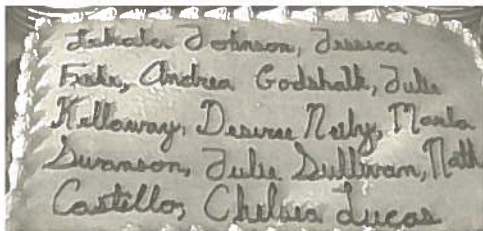 Johnson, Jessica
Andrea Godshalk, Julie
Kellaway, Desiree Neihy, Marla
Swanson, Julie Sullivan, Nath
Castello, Chelsea Lucas